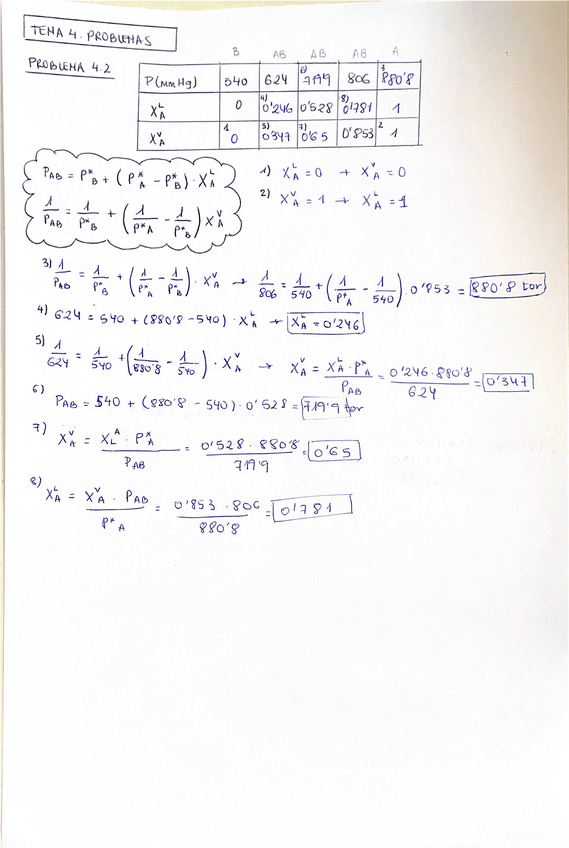 TEMA 4. PROBLEMAS
PROBLEMA 4.2
B AB AB AB A
P(mmHg) 540 624 6) 719'9 806 3) 880'8
X_A^L 0 4) 0'246 0'528 8) 0'781 1
X_A^V 1 0 5) 0'347 7) 0'65 0'853 2 1
P_AB = P*_B + (P*_A - P*_B) · X_A^L
1/P_AB = 1/P*_B + (1/P*_A - 1/P*_B) X_A^V
1) X_A^L = 0 → X_A^V = 0
2) X_A^V = 1 → X_A^L = 1
3) 1/P_AB = 1/P*_B + (1/P*_A - 1/P*_B) · X_A^V → 1/806 = 1/540 + (1/P*_A - 1/540) · 0'853 = 880'8 tor
4) 624 = 540 + (880'8 - 540) · X_A^L → X_A^L = 0'246
5) 1/624 = 1/540 + (1/880'8 - 1/540) · X_A^V → X_A^V = X_A^L · P*_A / P_AB = 0'246 · 880'8 / 624 = 0'347
6) P_AB = 540 + (880'8 - 540) · 0'528 = 719'9 tor
7) X_A^V = X_L^A · P*_A / P_AB = 0'528 · 880'8 / 719'9 = 0'65
8) X_A^L = X_A^V · P_AB / P*_A = 0'853 · 806 / 880'8 = 0'781